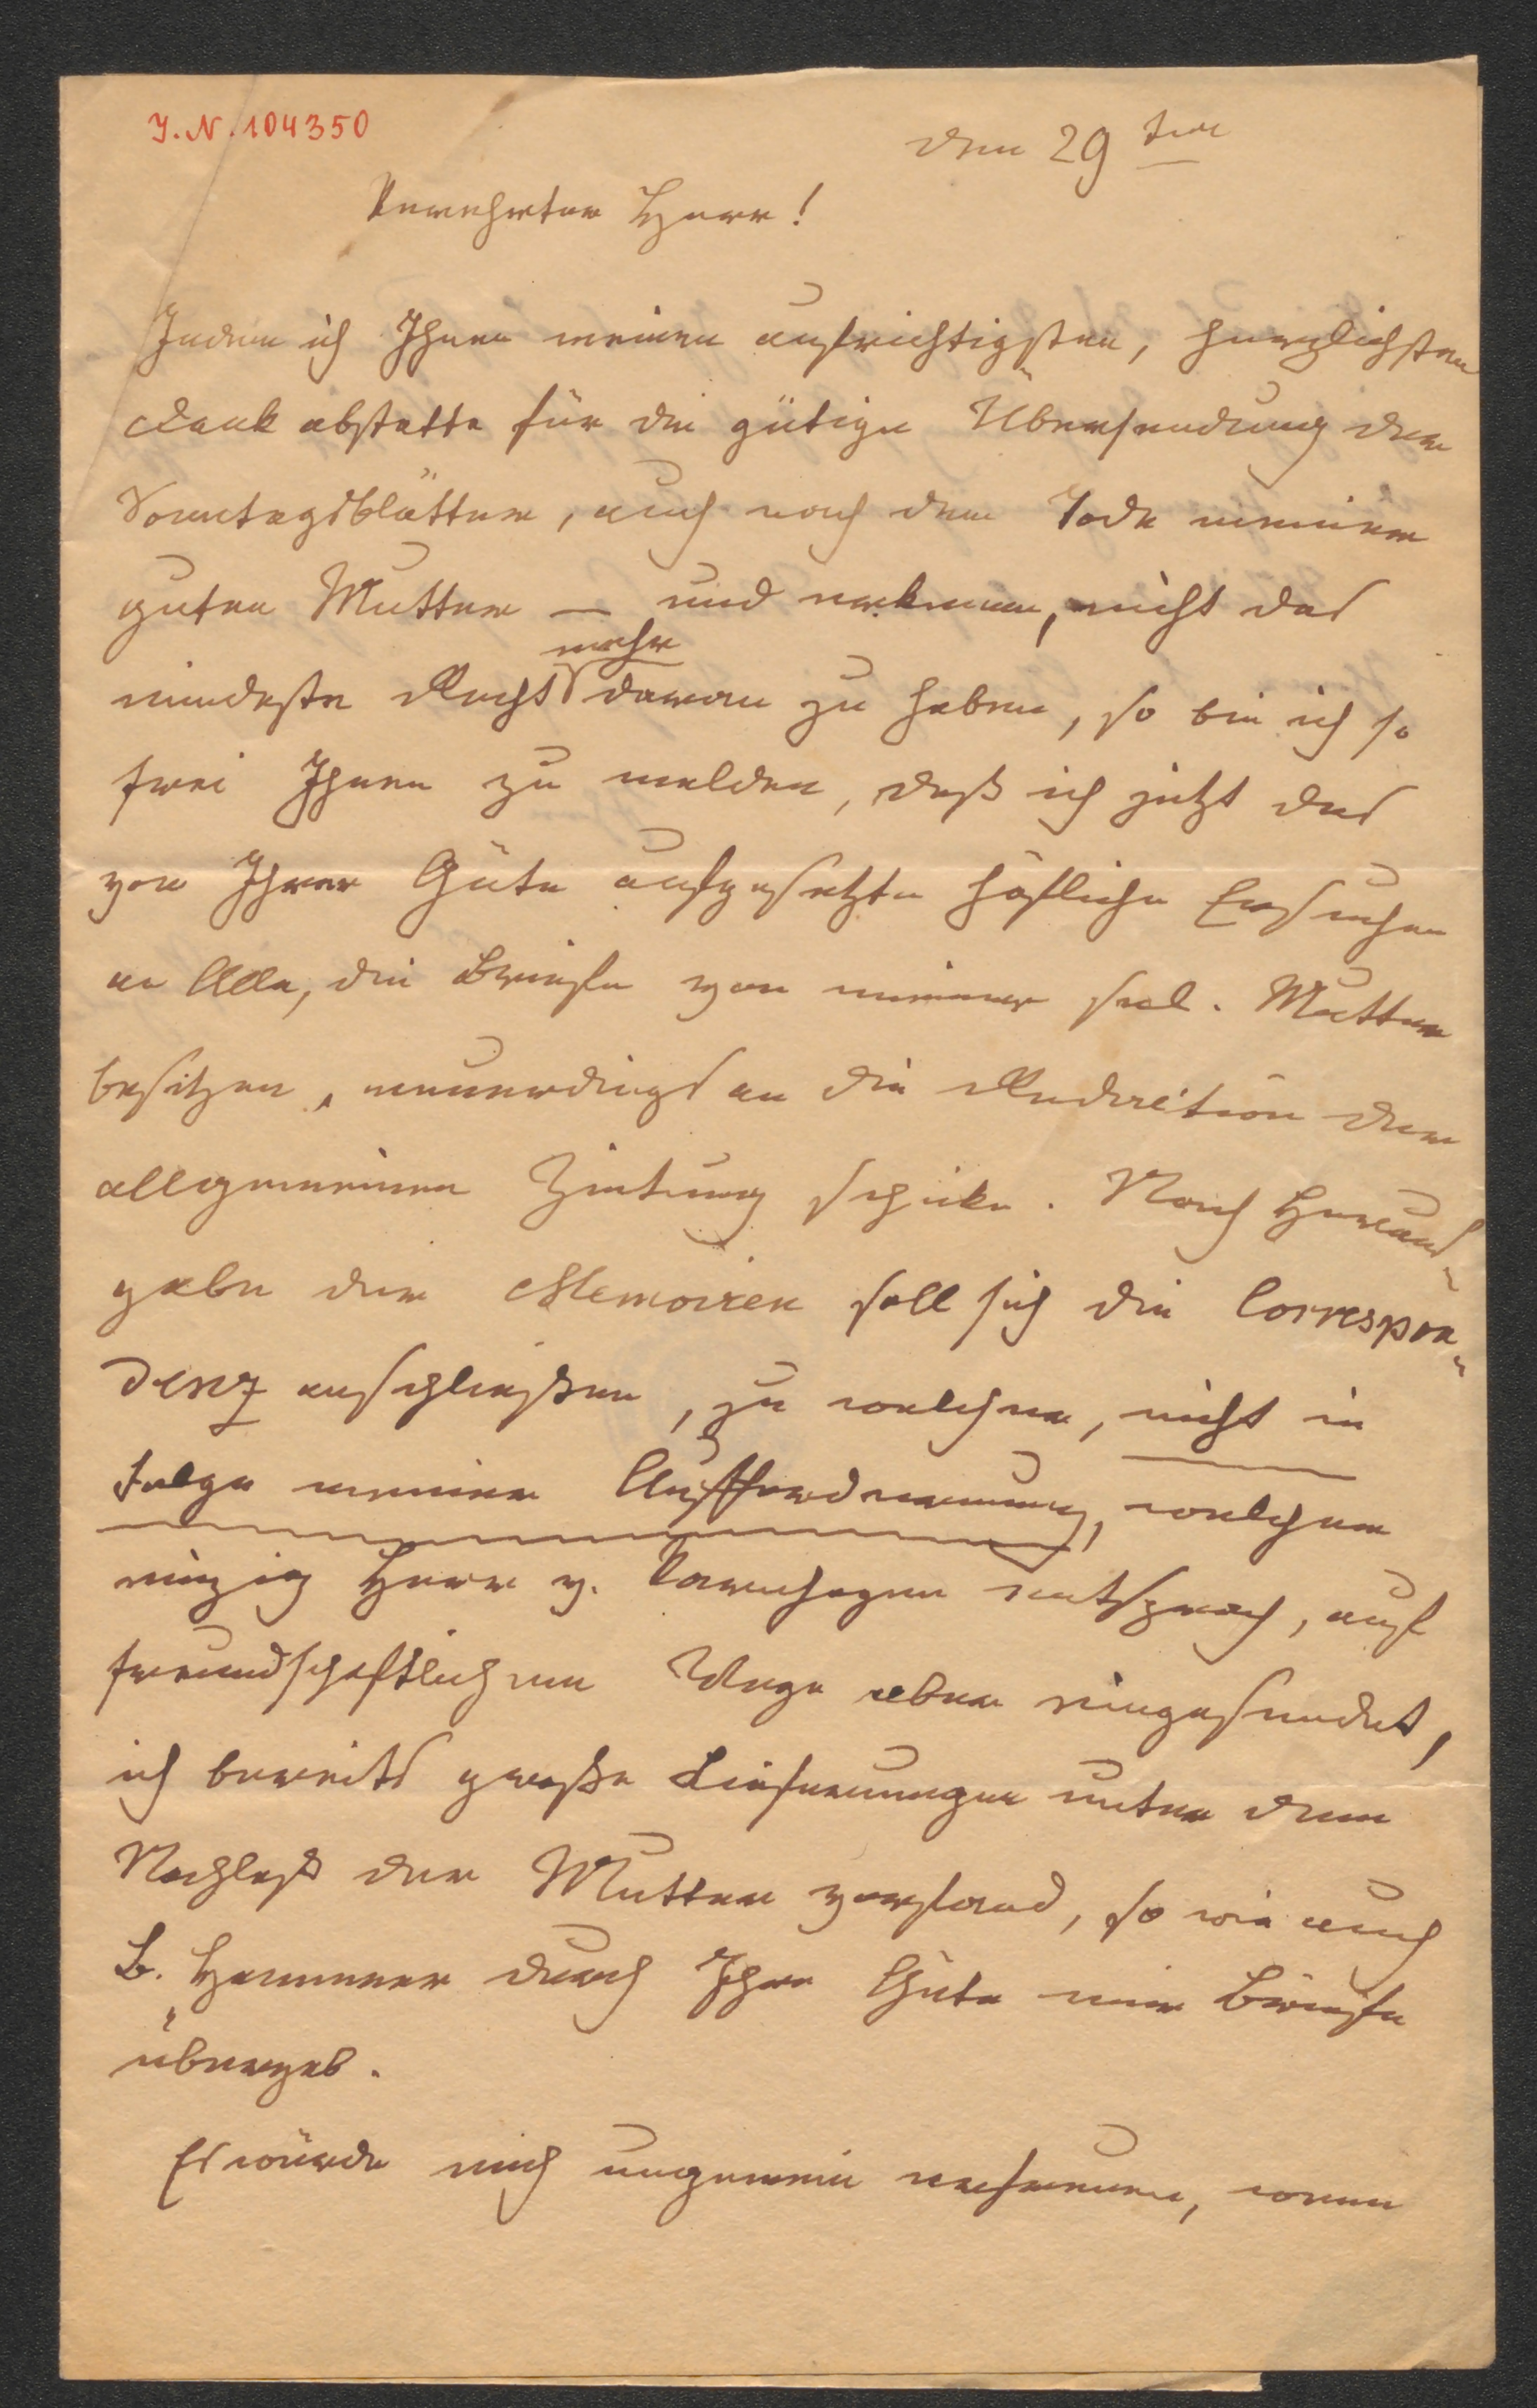 J. N. 104350
den 29ten
Verehrter Herr!
Indem ich Ihnen meinen aufrichtigsten, herzlichsten
Dank abstatte für die gütige Übersendung der
Sonntagsblätter, auch nach dem Tode meiner
guten Mutter – und erkenne, nicht das
mehr
mindeste Recht daran zu haben, so bin ich so
frei Ihnen zu melden, daß ich jetzt das
von Ihrer Güte aufgesetzte höfliche Ersuchen
an Alle, die Briefe von meiner sel. Mutter
besitzen, neuerdings an die Redaction der
allgemeinen Zeitung schicke. Nach Heraus-
gabe der Memoiren soll sich die Correspon-
denz anschließen, zu welcher, nicht in
Folge meiner Aufforderung, welcher
einzig Herr v. Varnhagen entsprach, auf
freundschaftlichem Wege aber eingesendet,
ich bereits große Lieferungen unter dem
Nachlaß der Mutter vorfand, so wie auch
B. Hammer durch Ihre Güte mir Briefe
übergab.
Es würde mich ungemein erfreuen, wenn